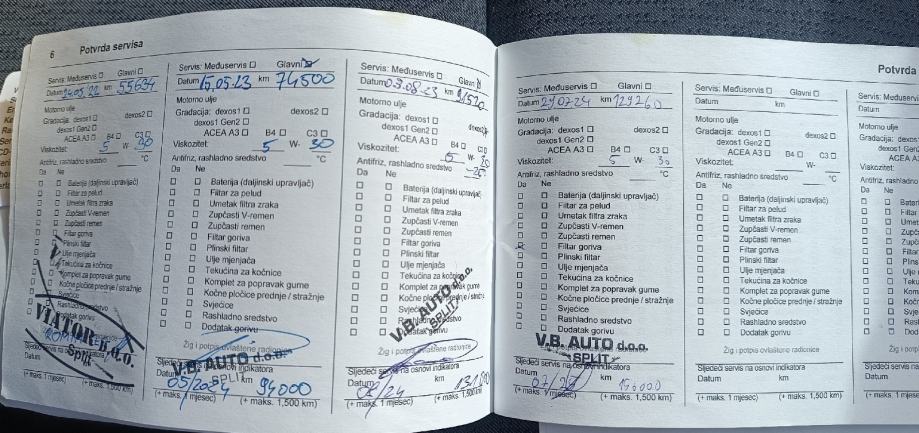 6 Potvrda servisa
Servis: Međuservis ☐ Glavni ☐
Datum km 55634
Motorno ulje
Gradacija: dexos1 ☐ dexos2 ☐
dexos1 Gen2 ☐
ACEA A3 ☐ B4 ☐ C3 ☐
Viskozitet: 5 W- 30
Antifriz, rashladno sredstvo °C
Da Ne
☐ ☐ Baterija (daljinski upravljač)
☐ ☐ Filtar za pelud
☐ ☐ Umetak filtra zraka
☐ ☐ Zupčasti V-remen
☐ ☐ Zupčasti remen
☐ ☐ Filtar goriva
☐ ☐ Plinski filtar
☐ Ulje mjenjača
☐ Tekućina za kočnice
☐ Komplet za popravak gume
☐ Kočne pločice prednje / stražnje
Svjećice
Rashladno sredstvo
Dodatak gorivu
VIATOR d.o.o.
Split
Sljedeći servis na osnovi indikatora
Datum km
(+ maks. 1 mjesec) (+ maks. 1,500 km)
Servis: Međuservis ☐ Glavni
Datum 15.05.23 km 74500
Motorno ulje
Gradacija: dexos1 ☐ dexos2 ☐
dexos1 Gen2 ☐
ACEA A3 ☐ B4 ☐ C3 ☐
Viskozitet: 5 W- 30
Antifriz, rashladno sredstvo °C
Da Ne
☐ ☐ Baterija (daljinski upravljač)
☐ ☐ Filtar za pelud
☐ ☐ Umetak filtra zraka
☐ ☐ Zupčasti V-remen
☐ ☐ Zupčasti remen
☐ ☐ Filtar goriva
☐ ☐ Plinski filtar
☐ ☐ Ulje mjenjača
☐ ☐ Tekućina za kočnice
☐ ☐ Komplet za popravak gume
☐ ☐ Kočne pločice prednje / stražnje
☐ ☐ Svjećice
☐ ☐ Rashladno sredstvo
☐ ☐ Dodatak gorivu
Žig i potpis ovlaštene radionice
V.B. AUTO d.o.o.
SPLIT
Sljedeći servis na osnovi indikatora
Datum 05/2024 km 94000
(+ maks. 1 mjesec) (+ maks. 1,500 km)
Servis: Međuservis ☐ Glavni
Datum 03.08.23 km 91520
Motorno ulje
Gradacija: dexos1 ☐ dexos2
dexos1 Gen2 ☐
ACEA A3 ☐ B4 ☐ C3 ☐
Viskozitet: 5 W- 30
Antifriz, rashladno sredstvo -25
Da Ne
☐ ☐ Baterija (daljinski upravljač)
☐ ☐ Filtar za pelud
☐ ☐ Umetak filtra zraka
☐ ☐ Zupčasti V-remen
☐ ☐ Zupčasti remen
☐ ☐ Filtar goriva
☐ ☐ Plinski filtar
☐ ☐ Ulje mjenjača
☐ ☐ Tekućina za kočnice
☐ ☐ Komplet za popravak gume
☐ ☐ Kočne pločice prednje / stražnje
☐ ☐ Svjećice
☐ ☐ Rashladno sredstvo
☐ ☐ Dodatak gorivu
V.B. AUTO d.o.o.
SPLIT
Žig i potpis ovlaštene radionice
Sljedeći servis na osnovi indikatora
Datum km
(+ maks. 1 mjesec) (+ maks. 1,500 km)
Servis: Međuservis ☐ Glavni ☐
Datum 29.07.24 km 129260
Motorno ulje
Gradacija: dexos1 ☐ dexos2 ☐
dexos1 Gen2 ☐
ACEA A3 ☐ B4 ☐ C3 ☐
Viskozitet: 5 W- 30
Antifriz, rashladno sredstvo °C
Da Ne
☐ ☐ Baterija (daljinski upravljač)
☐ ☐ Filtar za pelud
☐ ☐ Umetak filtra zraka
☐ ☐ Zupčasti V-remen
☐ ☐ Zupčasti remen
☐ ☐ Filtar goriva
☐ ☐ Plinski filtar
☐ ☐ Ulje mjenjača
☐ ☐ Tekućina za kočnice
☐ ☐ Komplet za popravak gume
☐ ☐ Kočne pločice prednje / stražnje
☐ ☐ Svjećice
☐ ☐ Rashladno sredstvo
☐ ☐ Dodatak gorivu
Žig i potpis ovlaštene radionice
V.B. AUTO d.o.o.
SPLIT
Sljedeći servis na osnovi indikatora
Datum km
(+ maks. 1 mjesec) (+ maks. 1,500 km)
Servis: Međuservis ☐ Glavni ☐
Datum km
Motorno ulje
Gradacija: dexos1 ☐ dexos2 ☐
dexos1 Gen2 ☐
ACEA A3 ☐ B4 ☐ C3 ☐
Viskozitet: W-
Antifriz, rashladno sredstvo °C
Da Ne
☐ ☐ Baterija (daljinski upravljač)
☐ ☐ Filtar za pelud
☐ ☐ Umetak filtra zraka
☐ ☐ Zupčasti V-remen
☐ ☐ Zupčasti remen
☐ ☐ Filtar goriva
☐ ☐ Plinski filtar
☐ ☐ Ulje mjenjača
☐ ☐ Tekućina za kočnice
☐ ☐ Komplet za popravak gume
☐ ☐ Kočne pločice prednje / stražnje
☐ ☐ Svjećice
☐ ☐ Rashladno sredstvo
☐ ☐ Dodatak gorivu
Žig i potpis ovlaštene radionice
Sljedeći servis na osnovi indikatora
Datum km
(+ maks. 1 mjesec) (+ maks. 1,500 km)
Potvrda
Servis: Međuservis
Datum
Motorno ulje
Gradacija: dexos1
dexos1
ACEA
Viskozitet:
Antifriz, rashladno
Da Ne
Sljedeći servis na
Datum
(+ maks. 1 mjesec)